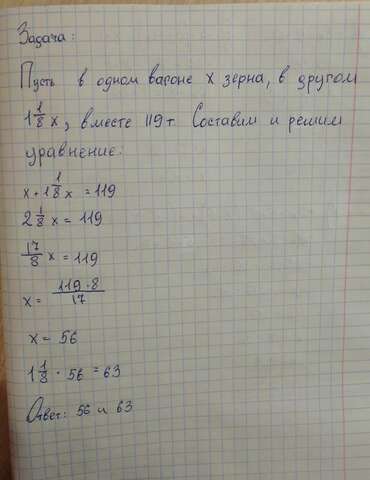 Задача:
Пусть в одном вагоне x зерна, в другом
1 1/8 x, вместе 119 т. Составим и решим
уравнение:
x + 1 1/8 x = 119
2 1/8 x = 119
17/8 x = 119
x = 119 · 8 / 17
x = 56
1 1/8 · 56 = 63
Ответ: 56 и 63